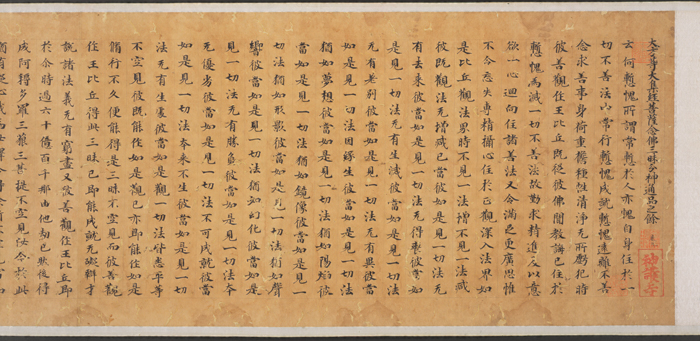 大方等大集經菩薩念佛三昧分神通品之餘
神護寺
云何慙愧所謂常慙於人亦愧自身住於一
切不善法以常行慙愧成就慙愧遠離不善
念求善事身荷重擔種性清淨无所虧犯時
彼善觀住王比丘既從彼佛聞教誨已住於
慙愧為滅一切不善法故勤求精進又以意
欲以心迴向住諸善法又令滿之更廣思惟
不令忘失專精攝心住於正觀深入法界如
是比丘觀法界時不見一法增不見一法減
彼既觀法无增減已當彼如是見一切法无
有去來彼當如是見一切法无彼當如
是見一切法无有生滅彼當如是見一切法
无有別彼當如是見一切法无有異彼當
如是見一切法因緣生彼當如是見一切法
猶如夢想彼當如是見一切法猶如陽焰彼
當如是見一切法猶如鏡像彼當如是見一
切法猶如形影彼當如是見一切法猶如聲
響彼當如是見一切法猶如幻化彼當如是
見一切法无有勝負彼當如是見一切法本
无優劣彼當如是見一切法不可成就彼當
如是見一切法本來不生彼當如是見一切
法无有生處彼當如是觀一切法皆悉平等
不空見彼既能作如是觀已亦能住如是
脩行不久便能得是三昧不空見而彼善觀
住王比丘得此三昧已即能成就无礙辯才
說諸法義无有窮盡又彼善觀住王比丘即
於命時過六十億百千那由他劫已然後得
成阿耨多羅三藐三菩提不空見汝今於此